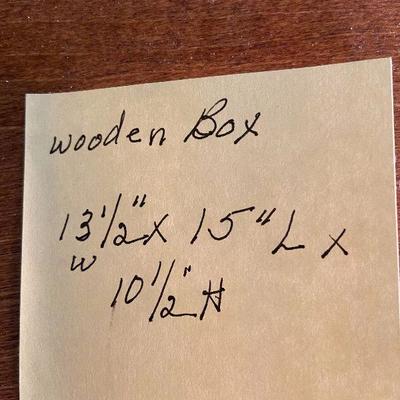 wooden Box
13 1/2" x 15" L x
W
10 1/2" H